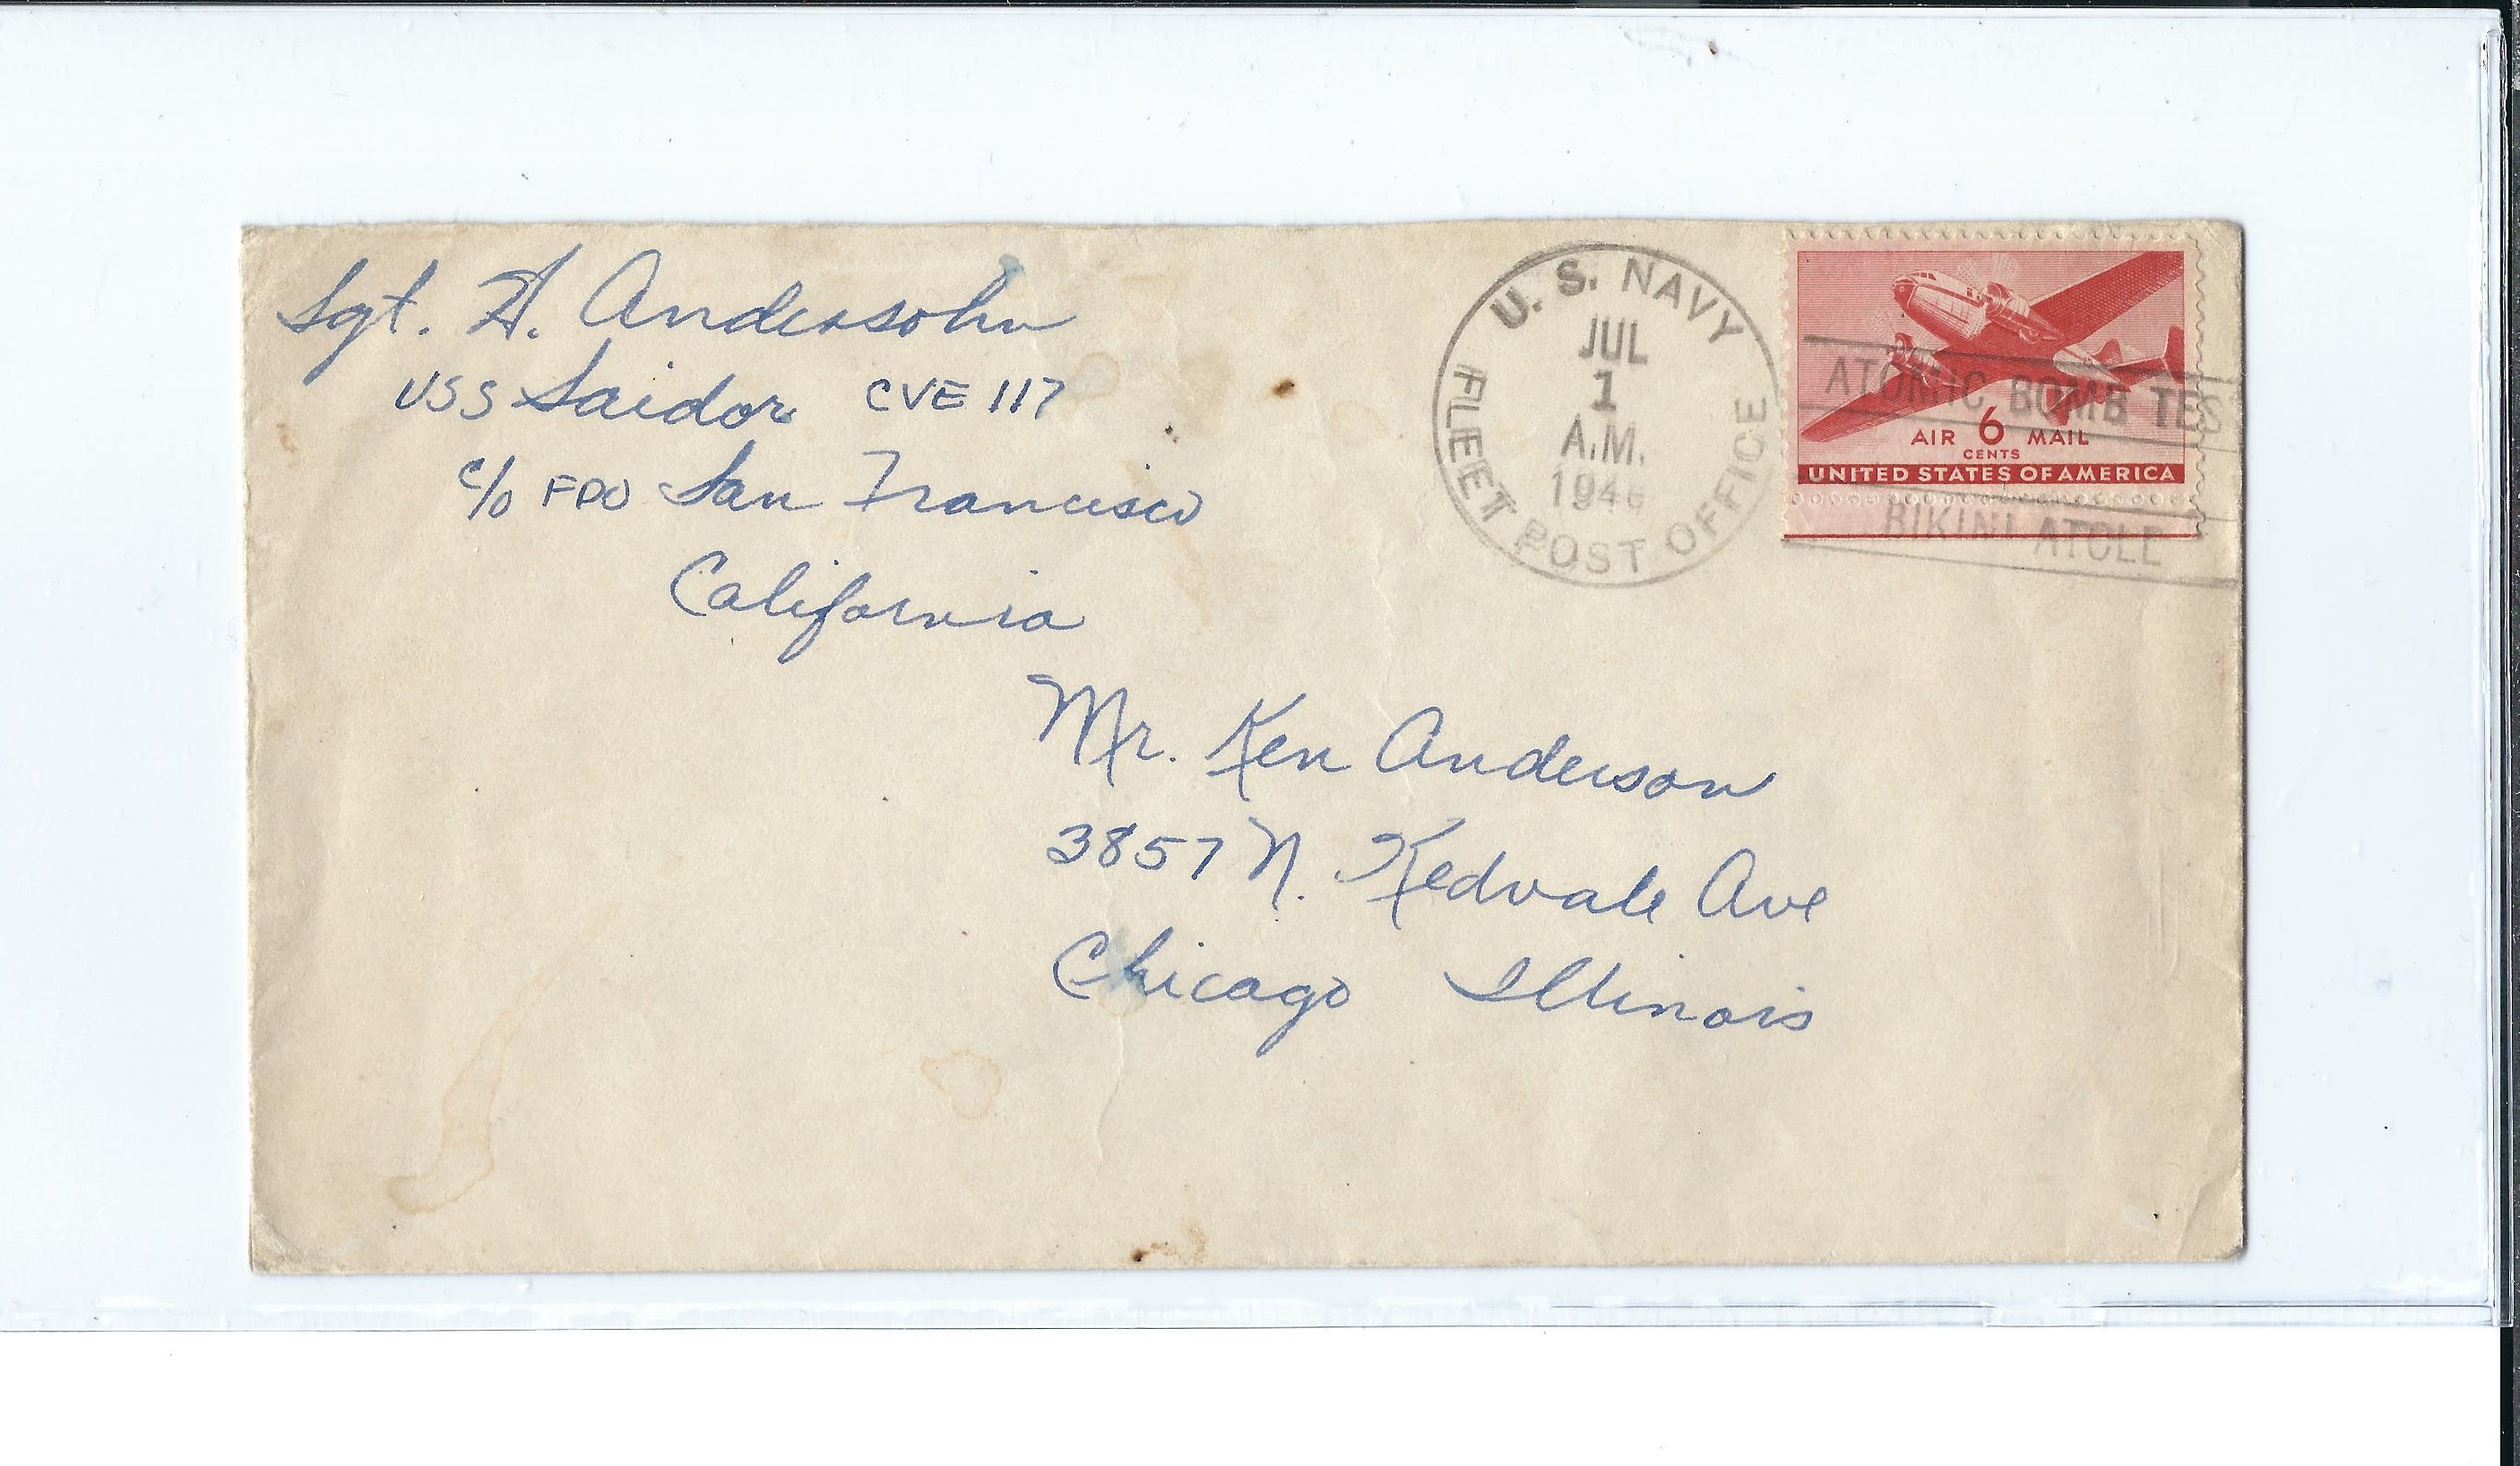 Sgt. H. Andersohn
USS Saidor CVE 117
c/o FPO San Francisco
California
U. S. NAVY
JUL
1
A.M.
1946
FLEET POST OFFICE
ATOMIC BOMB TES
AIR 6 MAIL
CENTS
UNITED STATES OF AMERICA
BIKINI ATOLL
Mr. Ken Anderson
3857 N. Kedvale Ave
Chicago Illinois